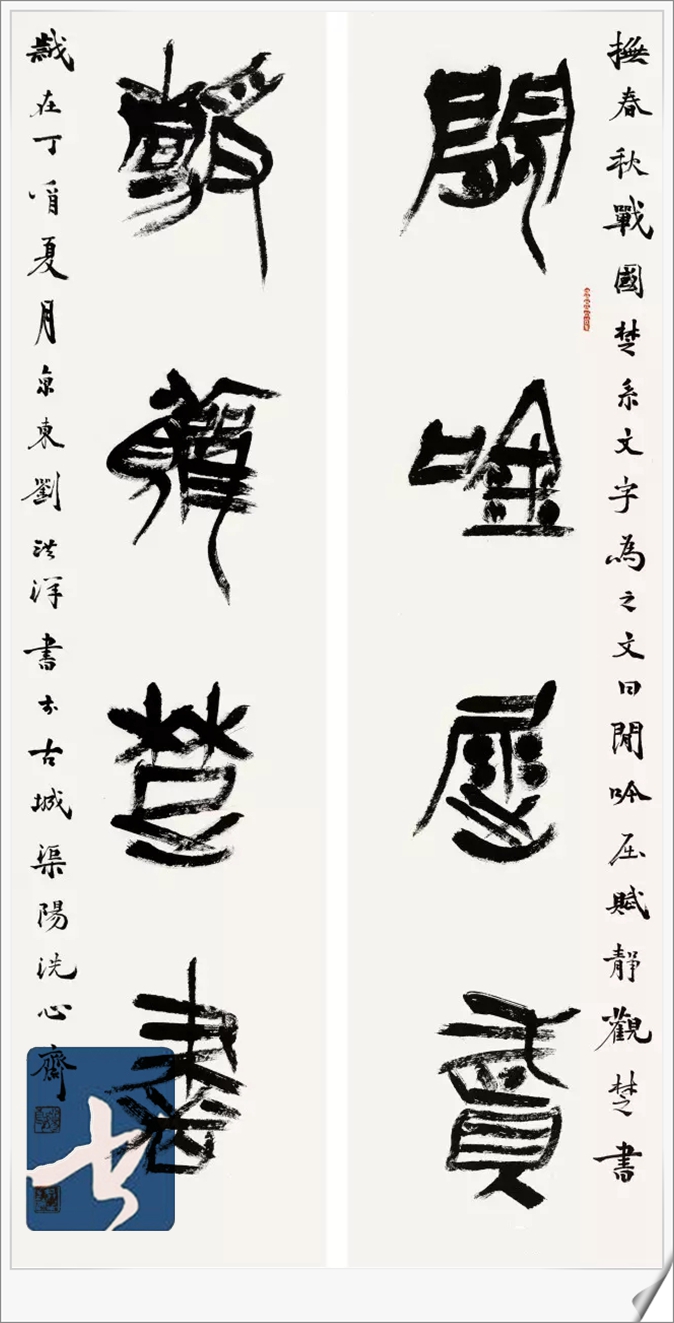 撫春秋戰國楚系文字為之文曰閒吟屈賦靜觀楚書
閒吟屈賦
靜觀楚書
歲在丁酉夏月京東劉洪洋書於古城渠陽洗心齋